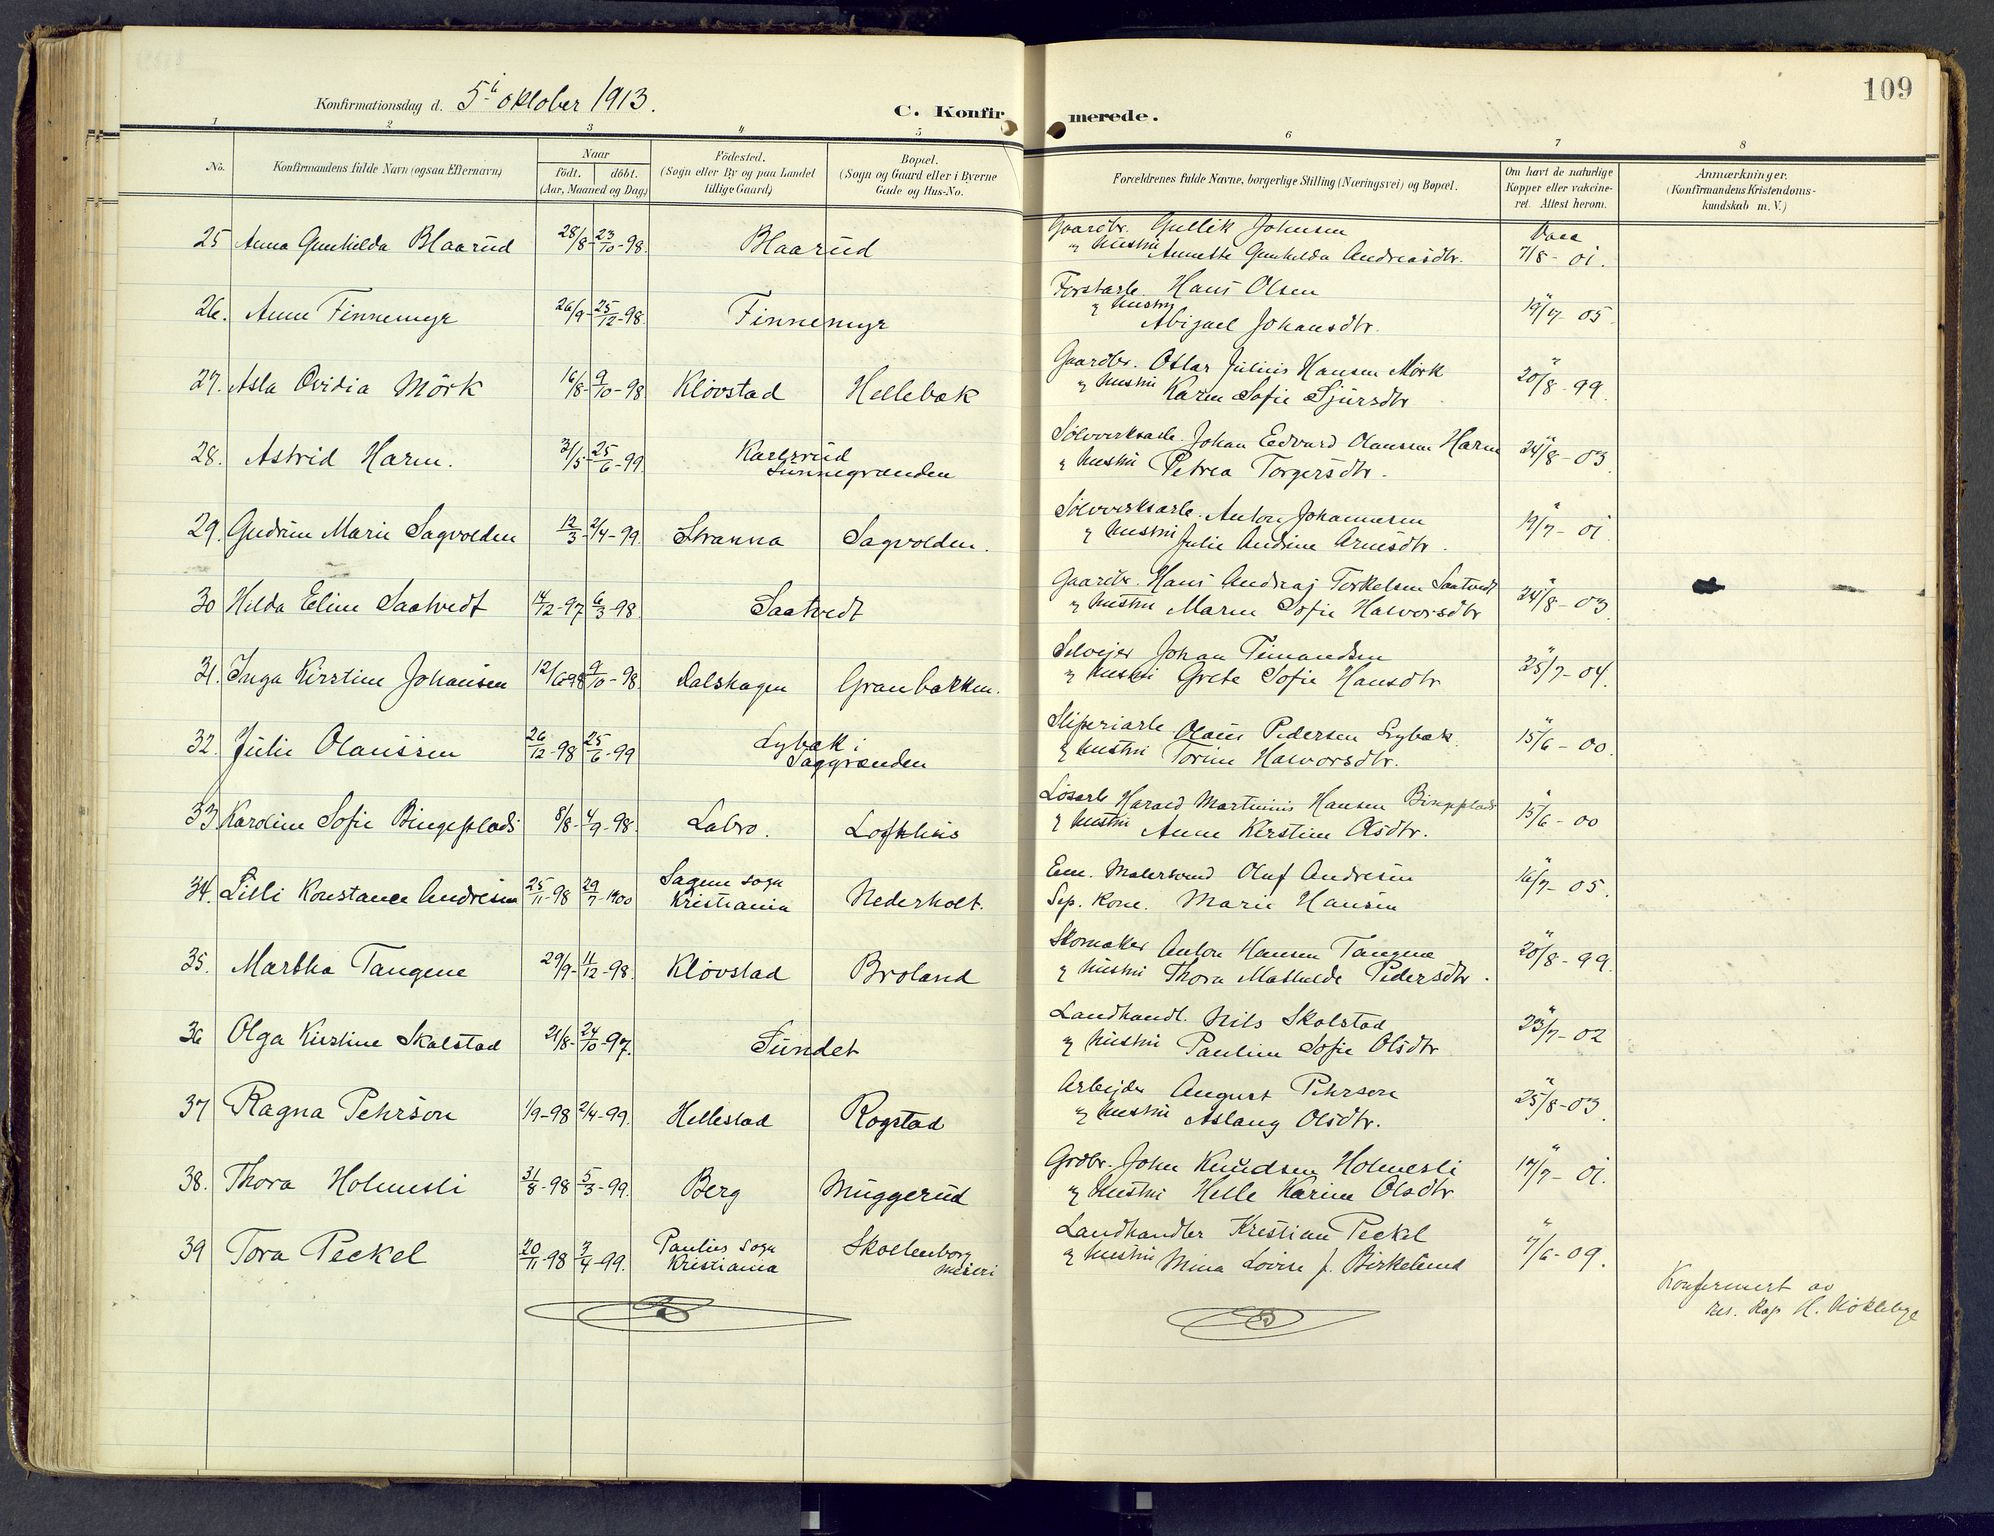 109
Konfirmationsdag d. 5i oktober 1913.
C. Konfirmerede.
1 2 3 4 5 6 7 8
No.
Konfirmandens fulde Navn (ogsaa Efternavn)
Naar
födt. döbt.
(Aar, Maaned og Dag)
Födested.
(Sogn eller By og paa Landet
tillige Gaard)
Bopæl.
(Sogn og Gaard eller i Byerne
Gade og Hus-No.
Forældrenes fulde Navne, borgerlige Stilling (Næringsvei) og Bopæl.
Om havt de naturlige
Kopper eller vakcine-
ret. Attest herom.
Anmærkninger.
(Konfirmandens Kristendoms-
kundskab m. V.)
25 Anna Gunhilda Blaarud 28/8- 23/10-98. Blaarud Gaardbr. Gullik Johnsen
og hustru Annette Gunhilda Andreasdtr. 7/8-01.
26. Anne Finnemyr 26/9- 25/12-98. Finnemyr Hans Olsen
og hustru Abigael Johansdtr. 19/7-05
27. Asta Ovidia Mörk 16/8- 9/10-98 Klövstad Hellebæk Gaardbr. Julius Hansen Mörk
og hustru Karen Sofie Sjursdtr 20/8-99.
28. Astrid Harm. 31/5- 25/6-99 Karlsrud Sölvverksarb. Johan Edvard Olaussen Harm
og hustru Petrea Torgersdtr. 24/8-03
29. Gudrun Marie Sagvolden 12/3- 2/4-99. Stranna Sagvolden. Sölvverksarb. Anton Johannesen
og hustru Julie Andrine Arnesdtr. 19/7-01
30 Helda Eline Saatvedt 14/12-97 6/3-98. Saatvedt Gaardbr. Hans Andreas Torkelsen Saatvedt
og hustru Maren Sofie Halvorsdtr 24/8-03
31. Inga Kirstine Johansen 12/6-98 9/10-98. Dalshagen Granbakken. Selvejer Johan
og hustru Grete Sofie Hansdtr 25/7-04.
32. Julie Olaussen 26/12-98 25/6-99 Lybæk i
Saggrænden Sliperiarb Olaus Pedersen Lybæk
og hustru Torine Halvorsdtr. 15/6-00.
33 Karoline Sofie Bingeplads 8/8- 4/9-98. Labro. Løsarb Harald Martinius Hansen Bingeplads
og hustru Anne Kirstine Olsdtr. 15/6-00
34. Lilli Konstance Andresen 25/11-98 29/7-1900 Sagene sogn
Kristiania Nederholt. Em. Malersvend Olaf Andresen
Sep. Kone. Marie Hansen 16/7-05.
35. Martha Tangene 29/9- 11/12-98. Klövstad Broland Skomaker Anton Hansen Tangene
og hustru Thora Mathilde Pedersdtr. 20/8-99.
36 Olga Kirstine Skalstad 21/8- 24/10-97. Sundet Landhandl. Nils Skalstad
og hustru Pauline Sofie Olsdtr 23/7-02
37 Ragna Pehrson 1/9-98 2/4-99. Hellestad Rogstad Arbejder August Pehrson
og hustru Aslaug Olsdtr. 25/8-03
38. Thora Holmesli 31/8-98 5/3-99. Berg Muggerud Grdbr. John Knudsen Holmesli
og hustru Helle Karine Olsdtr 17/7-01.
39 Tora Peckel 20/11-98 3/4-99. Paulus sogn
Kristiania Skollenborg
meieri Landhandler Kristian Peckel
og hustru Mina Lovise f. Birkelund 7/6-09.
Konfirmert av
res. Kap H. Nöklebye